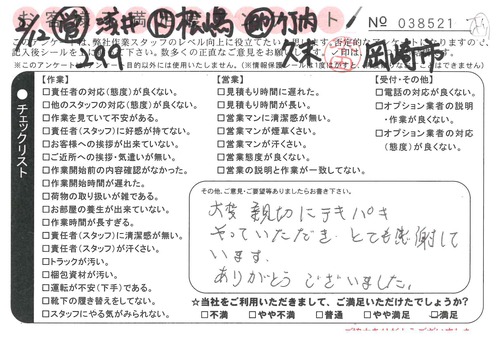 No 038521
5/2 営 浅井 松嶋 竹内
299 久米 岡崎市
このアンケートは、弊社作業スタッフのレベル向上に役立てたい
チェックリスト
【作業】
□責任者の対応(態度)が良くない。
□他のスタッフの対応(態度)が良くない。
□作業を見ていて不安がある。
□責任者(スタッフ)に好感が持てない。
□お客様への挨拶が出来ていない。
□ご近所への挨拶・気遣いが無い。
□作業開始前の内容確認がなかった。
□作業開始時間が遅れた。
□荷物の取り扱いが雑である。
□お部屋の養生が出来ていない。
□作業時間が長すぎる。
□責任者(スタッフ)に清潔感が無い。
□責任者(スタッフ)が汗くさい。
□トラックが汚い。
□梱包資材が汚い。
□運転が不安(下手)である。
□靴下の履き替えをしてない。
□スタッフにやる気がみられない。
【営業】
□見積もり時間に遅れた。
□見積もり時間が長い。
□営業マンに清潔感が無い。
□営業マンが煙草くさい。
□営業マンが汗くさい。
□営業態度が良くない。
□営業の説明と作業が一致してない。
【受付・その他】
□電話の対応が良くない。
□オプション業者の説明
・作業が良くない。
□オプション業者の対応
(態度)が良くない。
その他、ご意見・ご要望等ありましたらお書き下さい。
大変 親切に テキパキ
やっていただき とても感謝して
います。
ありがとう ございました。
☆当社をご利用いただきまして、ご満足いただけたでしょうか?
□不満 □やや不満 □普通 □やや満足 □満足